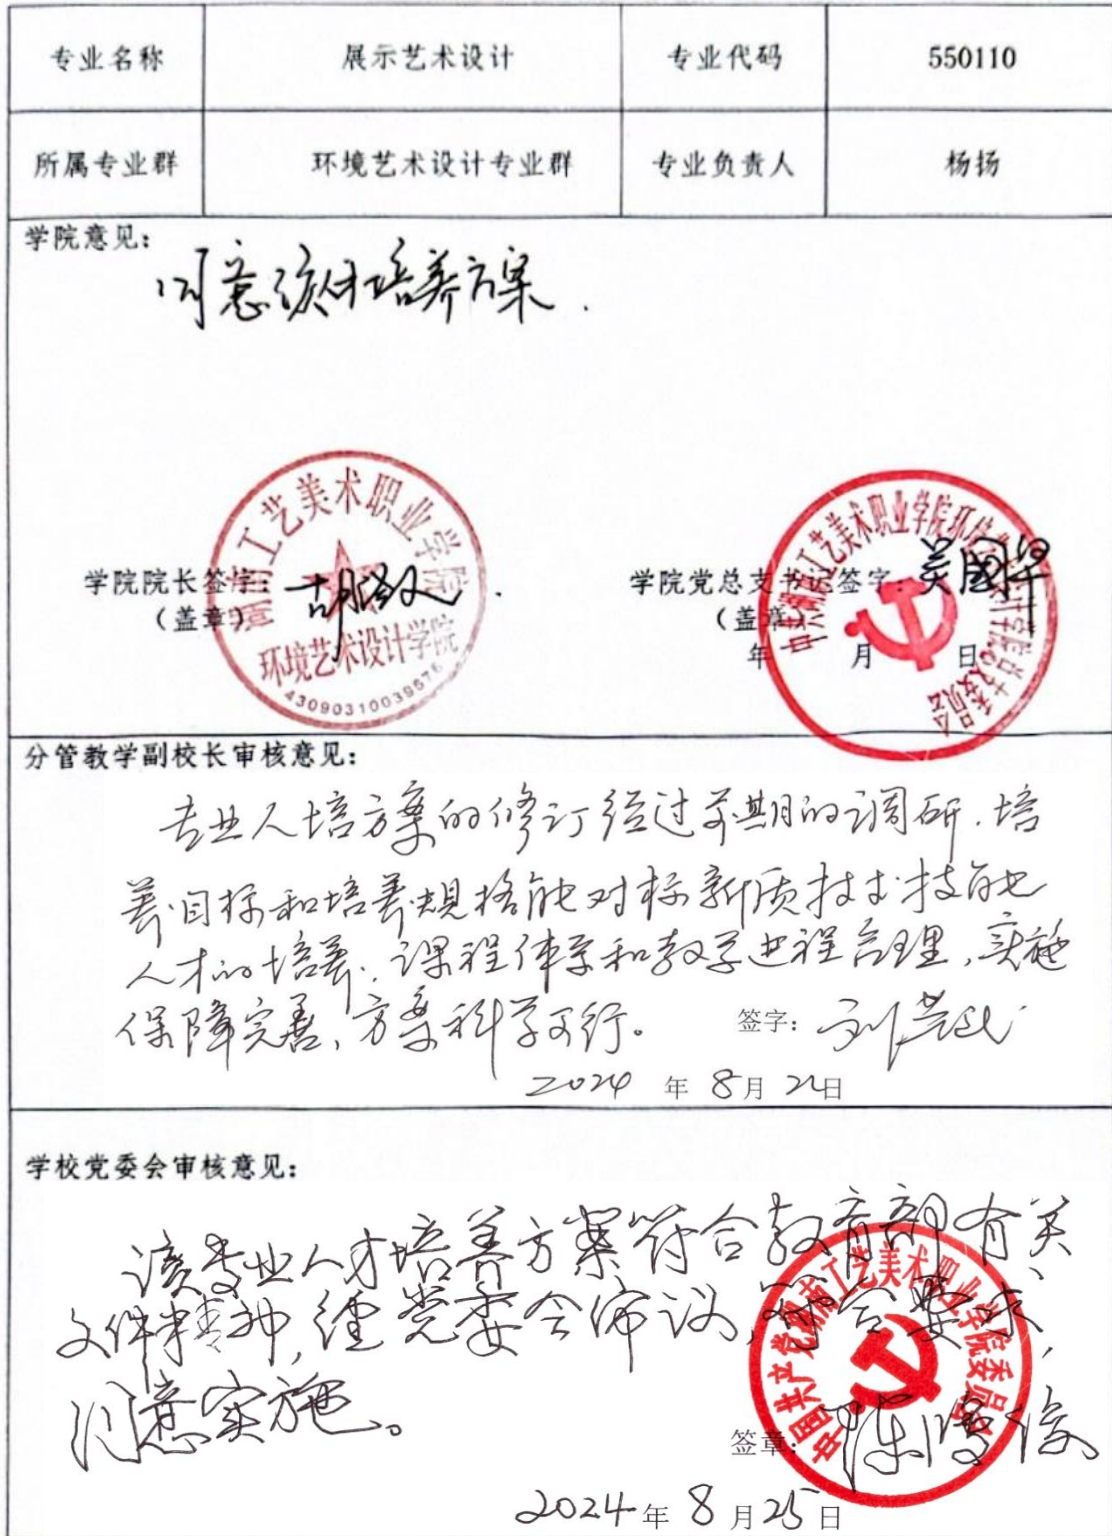 专业名称 展示艺术设计 专业代码 550110
所属专业群 环境艺术设计专业群 专业负责人 杨扬
学院意见：
同意该人才培养方案.
湖南工艺美术职业学院
环境艺术设计学院
学院院长签字：
（盖章）
学院党总支书记签字：
（盖章）
年 月 日
分管教学副校长审核意见：
专业人培方案的修订经过前期的调研，培
养目标和培养规格能对标新质技术技能
人才的培养，课程体系和教学进程合理，实施
保障完善，方案科学可行。
签字：
2024 年 8月 日
学校党委会审核意见：
该专业人才培养方案符合教育部有关
文件精神，经党委会审议，符合要求，
同意实施。
中国共产党湖南工艺美术职业学院委员会
签章：
2024年 8 月25日